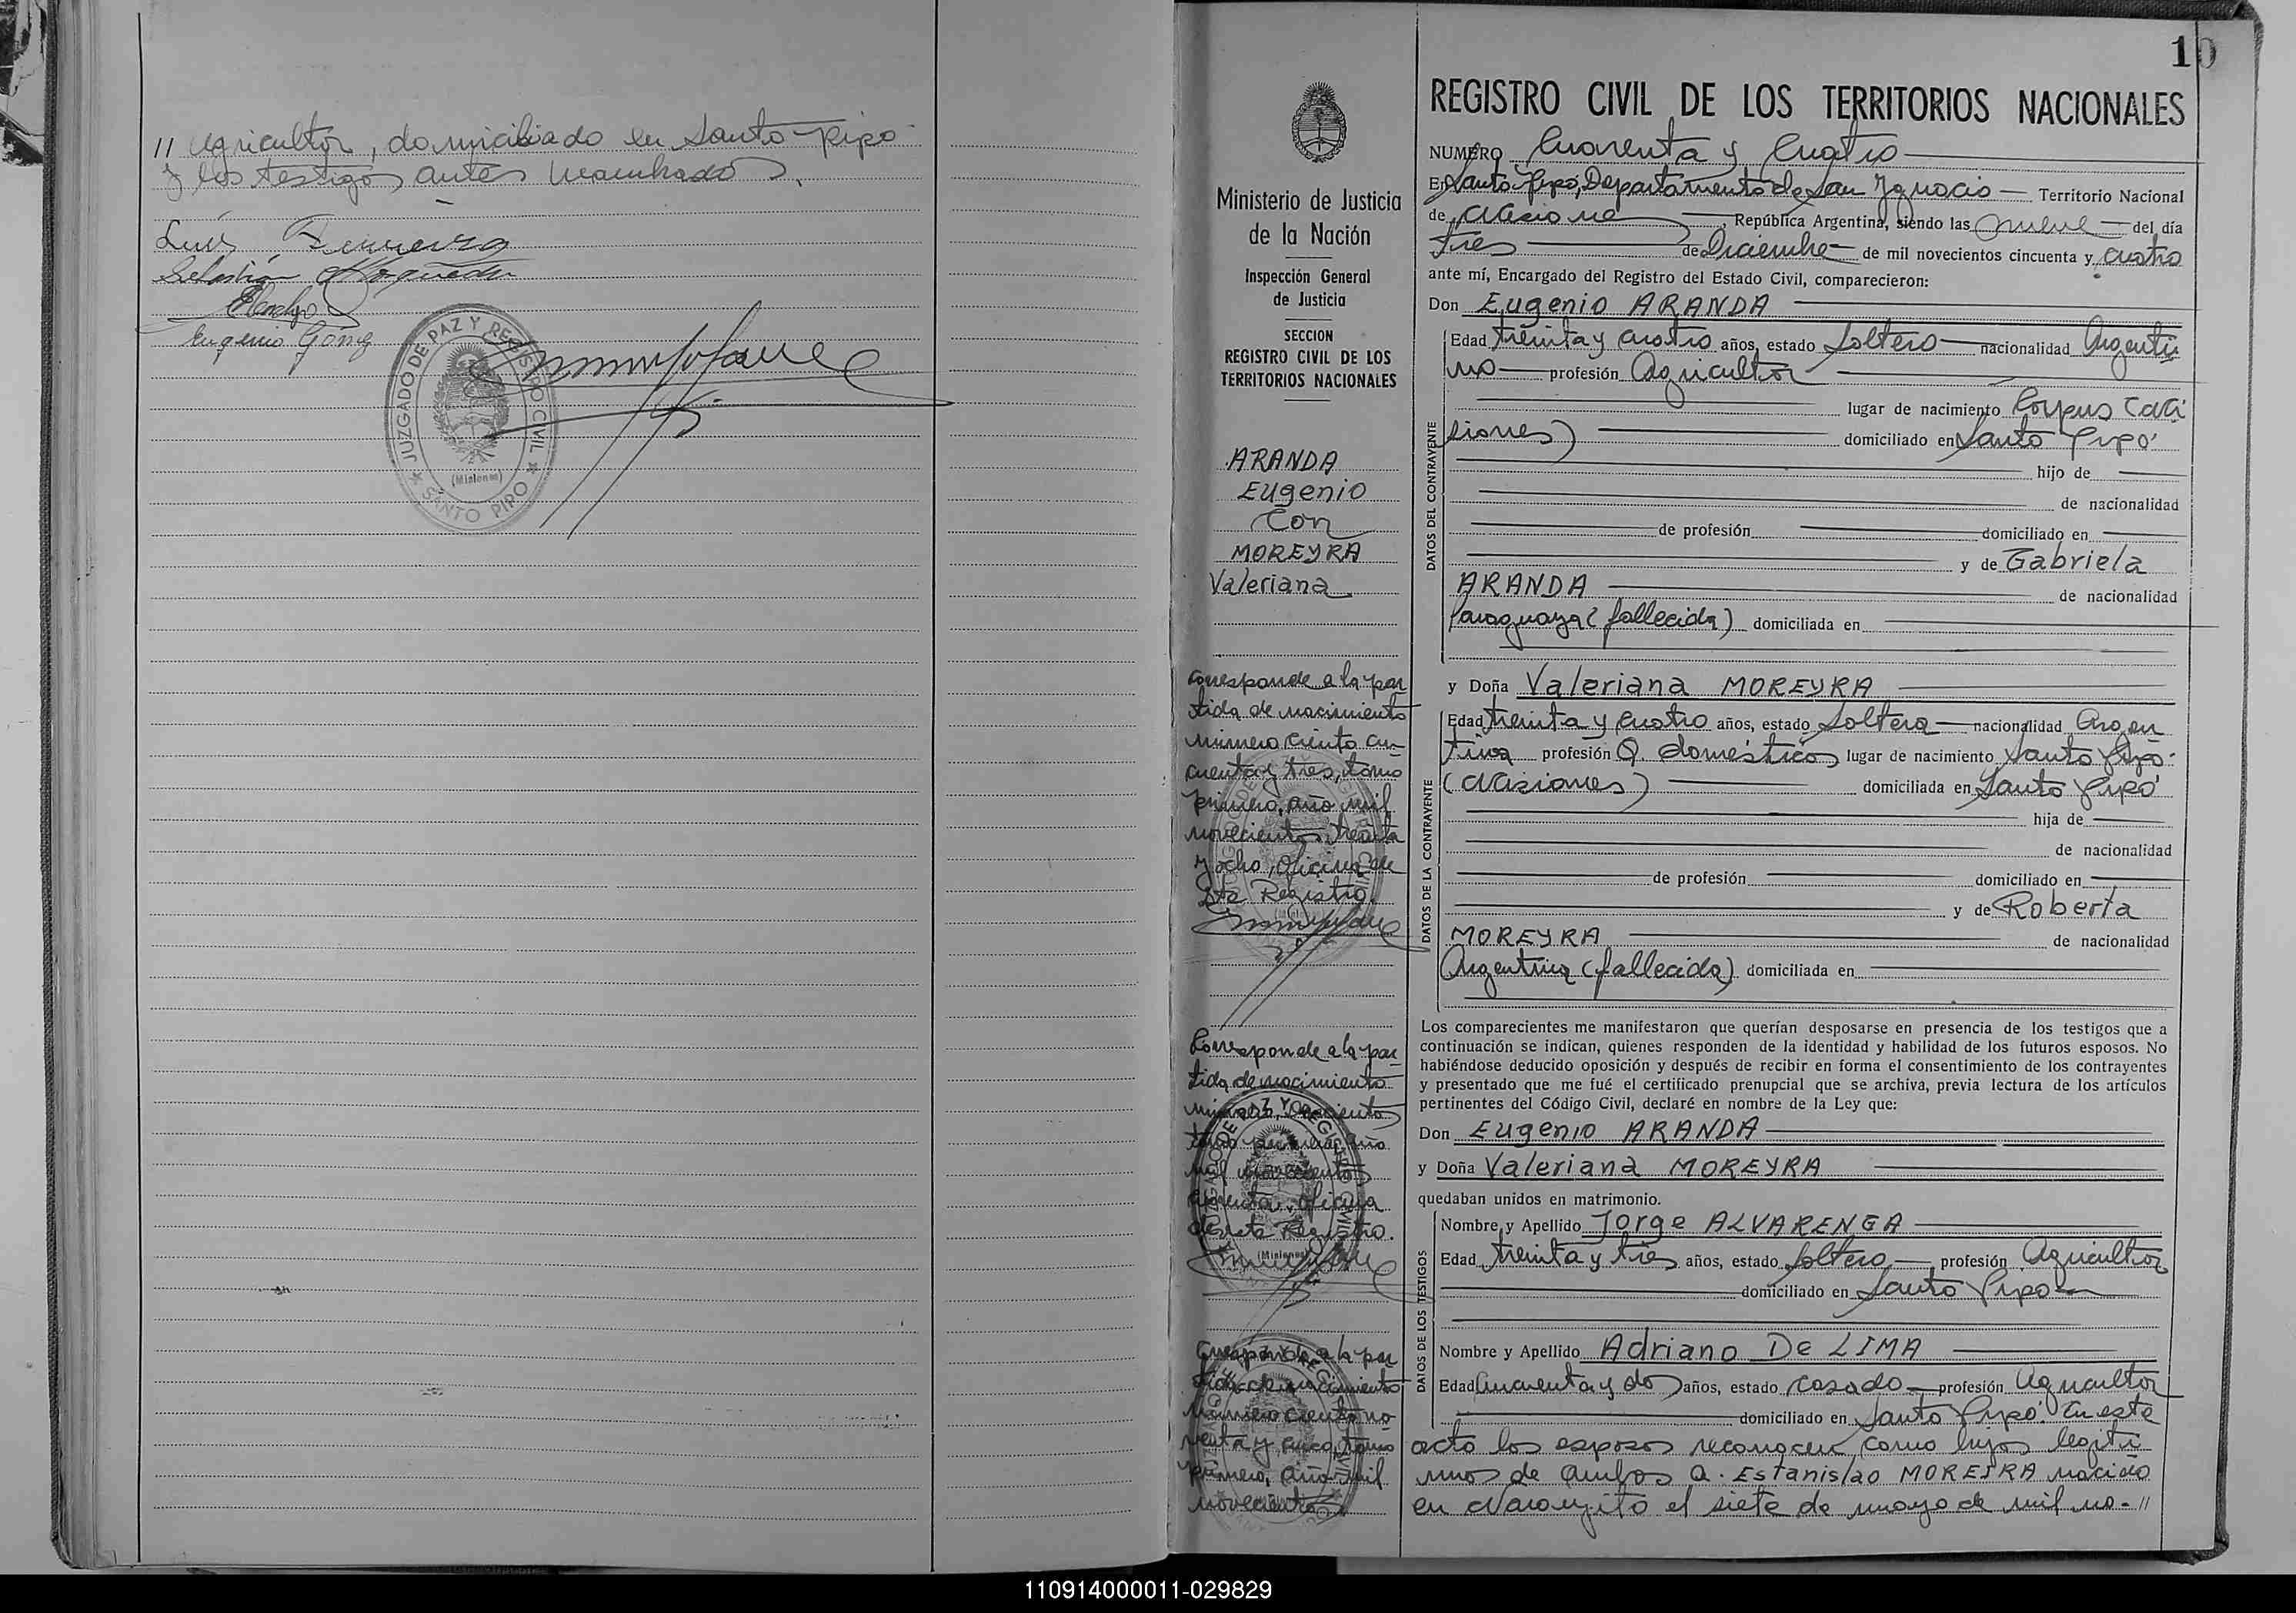 // Agricultor, domiciliado en Santo Pipó
y los testigos antes nombrados.
Luis Ferreira
Sebastián
Eugenio Gómez
JUZGADO DE PAZ Y REGISTRO CIVIL
(Misiones)
SANTO PIPO
10
Ministerio de Justicia
de la Nación
Inspección General
de Justicia
SECCION
REGISTRO CIVIL DE LOS
TERRITORIOS NACIONALES
ARANDA
Eugenio
Con
MOREYRA
Valeriana
Corresponde a la par
tida de nacimiento
número ciento cin
cuenta y tres, tomo
primero, año mil
novecientos treinta
y ocho, Oficina de
este Registro.
Corresponde a la par
tida de nacimiento
número
mil novecientos
cuarenta, oficina
de este Registro.
Corresponde a la par
tida de nacimiento
número ciento no
venta y cinco, tomo
primero, año mil
novecientos
REGISTRO CIVIL DE LOS TERRITORIOS NACIONALES
NUMERO Cuarenta y Cuatro
En Santo Pipó, Departamento de San Ignacio Territorio Nacional
de Misiones, República Argentina, siendo las nueve del día
tres de Diciembre de mil novecientos cincuenta y cuatro
ante mí, Encargado del Registro del Estado Civil, comparecieron:
Don Eugenio ARANDA
DATOS DEL CONTRAYENTE
Edad treinta y cuatro años, estado Soltero nacionalidad Argenti
no profesión Agricultor
lugar de nacimiento Corpus (Mi
siones) domiciliado en Santo Pipó
hijo de
de nacionalidad
de profesión domiciliado en
y de Gabriela
ARANDA de nacionalidad
Paraguaya (fallecida) domiciliada en
y Doña Valeriana MOREYRA
DATOS DE LA CONTRAYENTE
Edad treinta y cuatro años, estado Soltera nacionalidad Argen
tina profesión Q. domésticos lugar de nacimiento Santo Pipó
(Misiones) domiciliada en Santo Pipó
hija de
de nacionalidad
de profesión domiciliado en
y de Roberta
MOREYRA de nacionalidad
Argentina (fallecida) domiciliada en
Los comparecientes me manifestaron que querían desposarse en presencia de los testigos que a
continuación se indican, quienes responden de la identidad y habilidad de los futuros esposos. No
habiéndose deducido oposición y después de recibir en forma el consentimiento de los contrayentes
y presentado que me fué el certificado prenupcial que se archiva, previa lectura de los artículos
pertinentes del Código Civil, declaré en nombre de la Ley que:
Don Eugenio ARANDA
y Doña Valeriana MOREYRA
quedaban unidos en matrimonio.
DATOS DE LOS TESTIGOS
Nombre y Apellido Jorge ALVARENGA
Edad treinta y tres años, estado Soltero profesión Agricultor
domiciliado en Santo Pipó
Nombre y Apellido Adriano De LIMA
Edad Cincuenta y dos años, estado casado profesión Agricultor
domiciliado en Santo Pipó. En este
acto los esposos reconocen como hijos legíti
mos de ambos a: Estanislao MOREIRA nacido
en Naranjito el siete de mayo de mil no- //
110914000011-029829